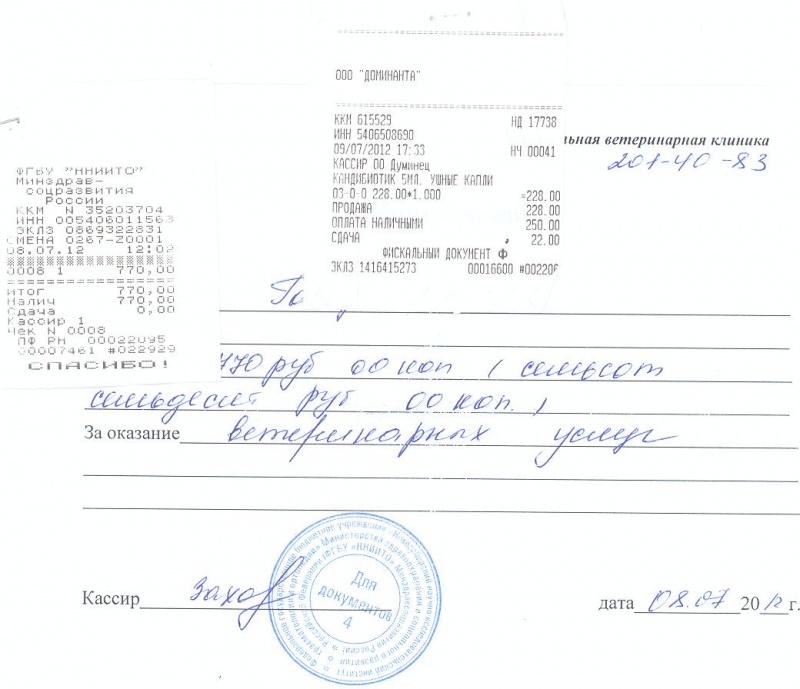 ООО "ДОМИНАНТА"
ККМ 615529 НД 17738
ИНН 5406508690
09/07/2012 17:33 НЧ 00041
КАССИР 00 Думинец
КАНДИБИОТИК 5МЛ. УШНЫЕ КАПЛИ
03-0-0 228.00*1.000 =228.00
ПРОДАЖА 228.00
ОПЛАТА НАЛИЧНЫМИ 250.00
СДАЧА 22.00
ФИСКАЛЬНЫЙ ДОКУМЕНТ Ф
ЭКЛЗ 1416415273 00016600 #002206
льная ветеринарная клиника
201-40-83
ФГБУ "ННИИТО"
Минздрав-
соцразвития
России
ККМ N 35203704
ИНН 005406011563
ЭКЛЗ 0869322831
СМЕНА 0267-Z0001
08.07.12 12:02
0008 1 770,00
Итог 770,00
Налич 770,00
Сдача 0,00
Кассир 1
Чек N 0008
ПФ РН 00022095
00007461 #022929
СПАСИБО!
770 руб 00 коп (семьсот
семьдесят руб 00 коп.)
За оказание ветеринарных услуг
Для
документов
4
Кассир
дата 08.07 2012 г.